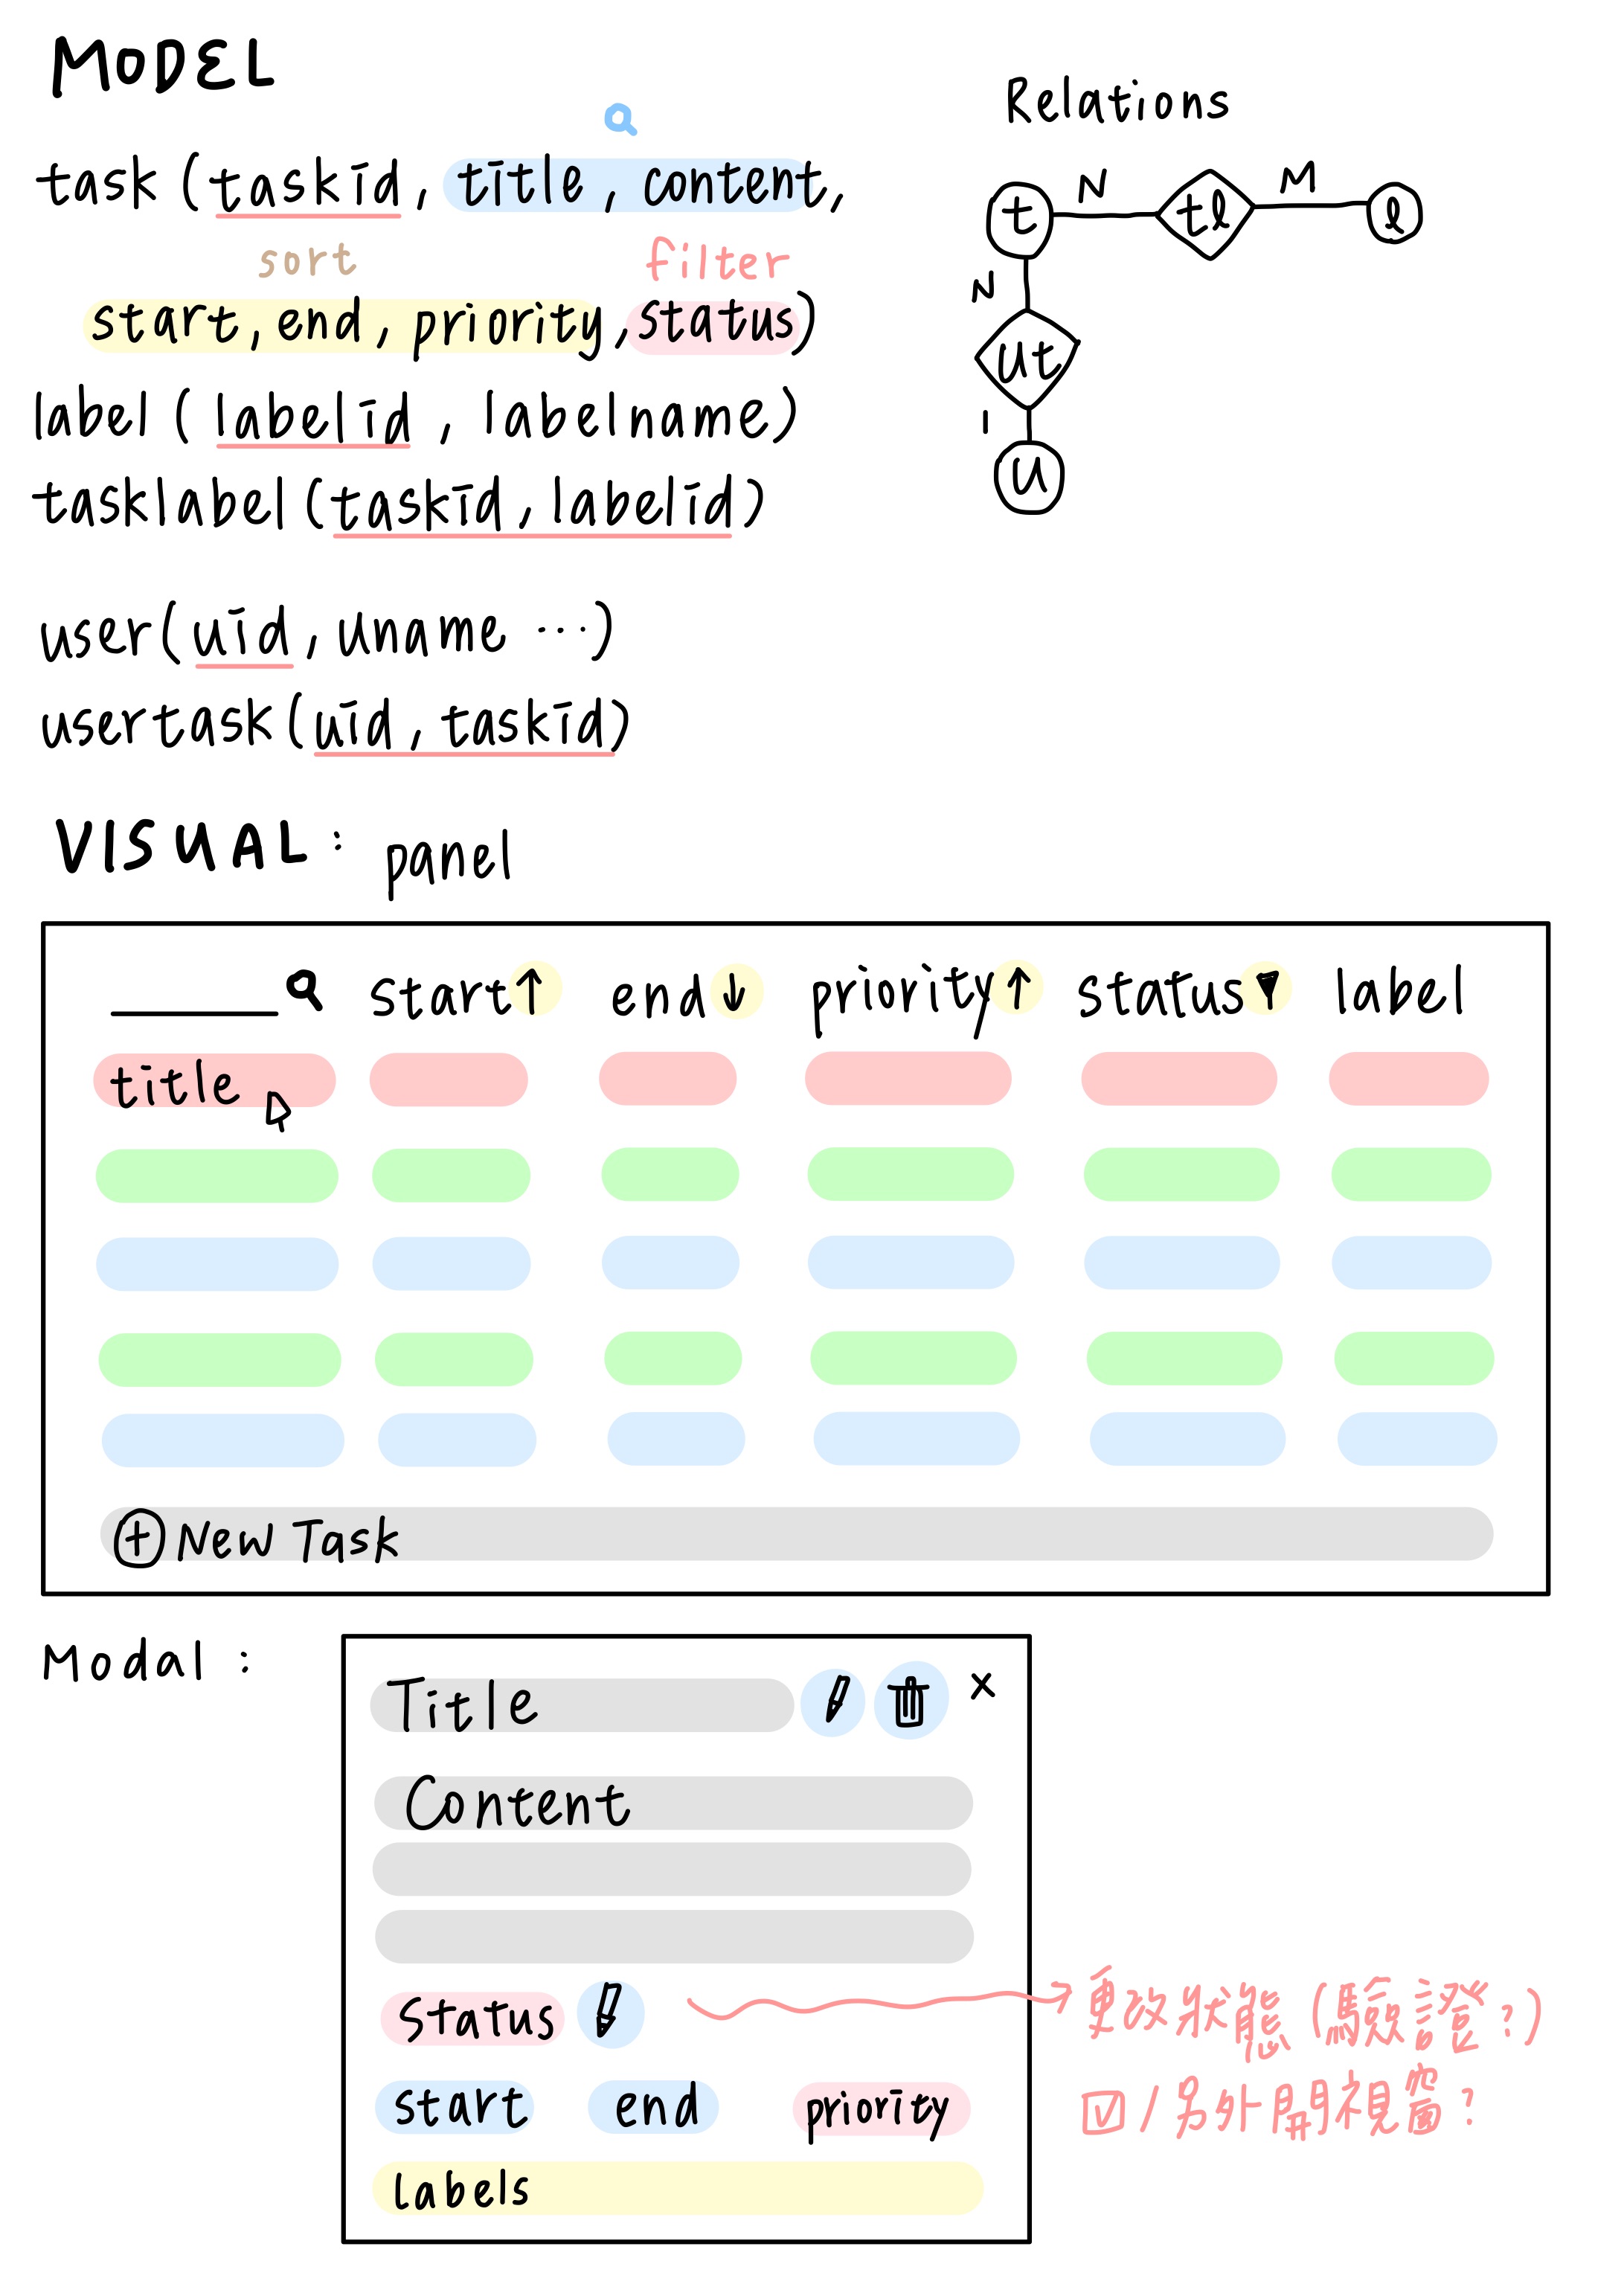 MODEL
task (taskid, title, content,
sort filter
start, end, priority, status)
label (labelid, labelname)
tasklabel(taskid, labelid)
user(uid, uname ...)
usertask(uid, taskid)
Relations
t N tl M l
N
ut
1
u
VISUAL: panel
start↑ end↓ priority↑ status▼ label
title
+ New Task
Modal:
Title ×
Content
status
更改狀態(驗證?)
☑/另外開視窗?
start end priority
labels